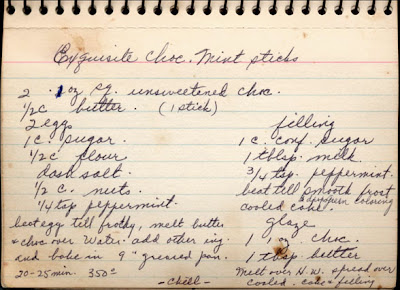 Exquisite Choc. Mint sticks
2 1 oz sq. unsweetened choc.
1/2 c butter. (1 stick)
2 eggs
1 c. sugar.
1/2 c flour
dash salt.
1/2 c. nuts.
1/4 tsp peppermint.
beat eggs till frothy, melt butter
& choc over water. add other ing.
and bake in 9" greased pan.
20-25 min. 350°
filling
1 c. conf. sugar
1 tblsp. milk
3/4 tsp. peppermint.
beat till smooth frost
cooled cake.
coloring
glaze
1 oz choc.
1 tbsp. butter
Melt over H.W. spread over
cooled, cake & filling
- chill -